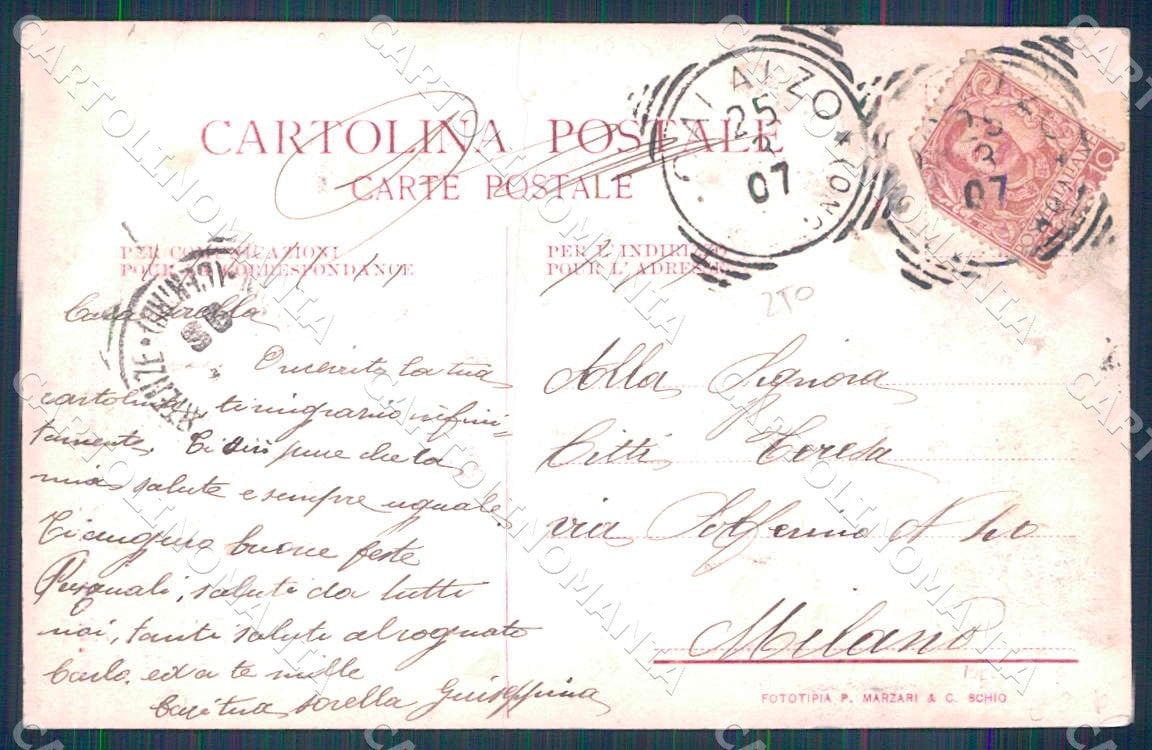 CARTOLINA POSTALE
CARTE POSTALE
PER COMUNICAZIONI
POUR LA CORRESPONDANCE
PER L'INDIRIZZO
POUR L'ADRESSE
25
07
07
10
2TO
Cara sorella
la tua
cartolina, ti ringrazio infini=
tamente. Ti dirò pure che la
mia salute e sempre uguale.
Ti auguro buone feste
Pasquali, saluti da tutti
noi, tanti saluti al cognato
Carlo. ed a te mille
baci tua sorella Guiseppina
Alla Signora
Citti Teresa
via Solferino N
Milano
FOTOTIPIA P. MARZARI & C. SCHIO
CARTOLINOMANIA